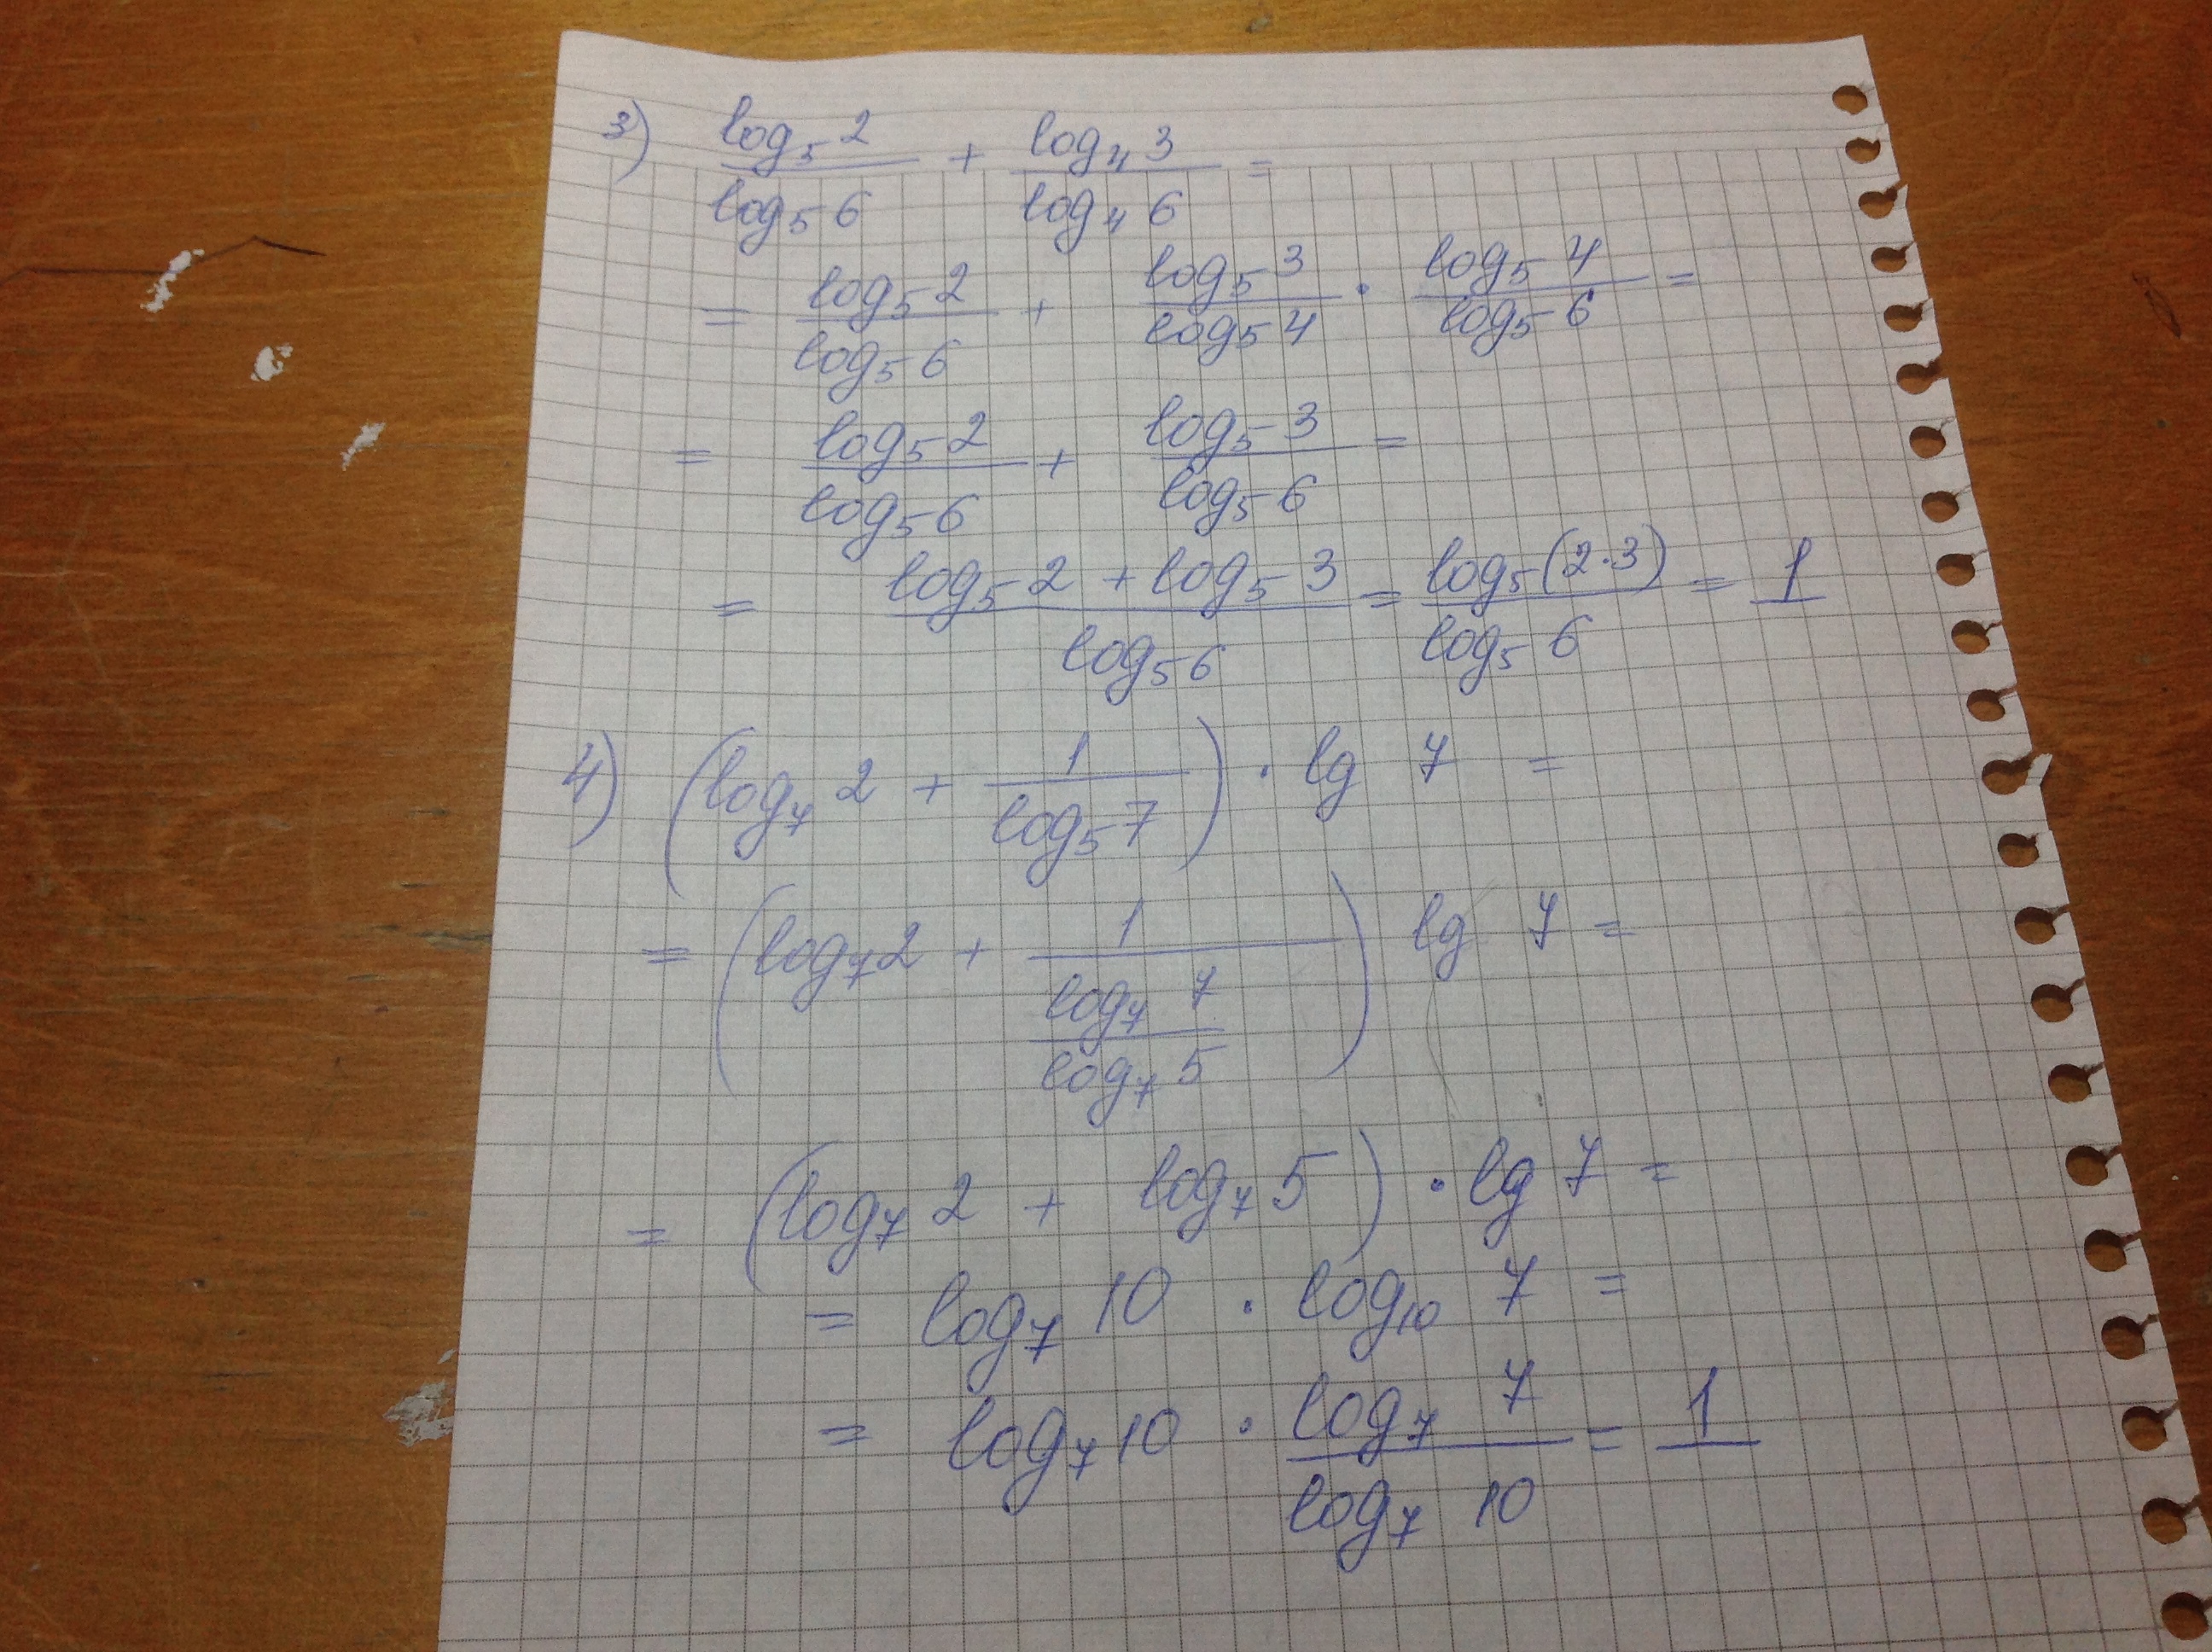 3) log₅2/log₅6 + log₄3/log₄6 =
= log₅2/log₅6 + log₅3/log₅4 · log₅4/log₅6 =
= log₅2/log₅6 + log₅3/log₅6 =
= (log₅2 + log₅3)/log₅6 = log₅(2·3)/log₅6 = 1
4) (log₇2 + 1/log₅7) · lg 7 =
= (log₇2 + 1/(log₇7/log₇5)) lg 7 =
= (log₇2 + log₇5) · lg 7 =
= log₇10 · log₁₀7 =
= log₇10 · log₇7/log₇10 = 1